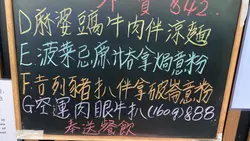 842
D麻婆豆腐牛肉伴涼麵
E:菠菜忌廉汁拿
意粉
F:吉列豬扒伴拿破崙意粉
G至運肉眼牛扒(160g)$88
奉送餐飲